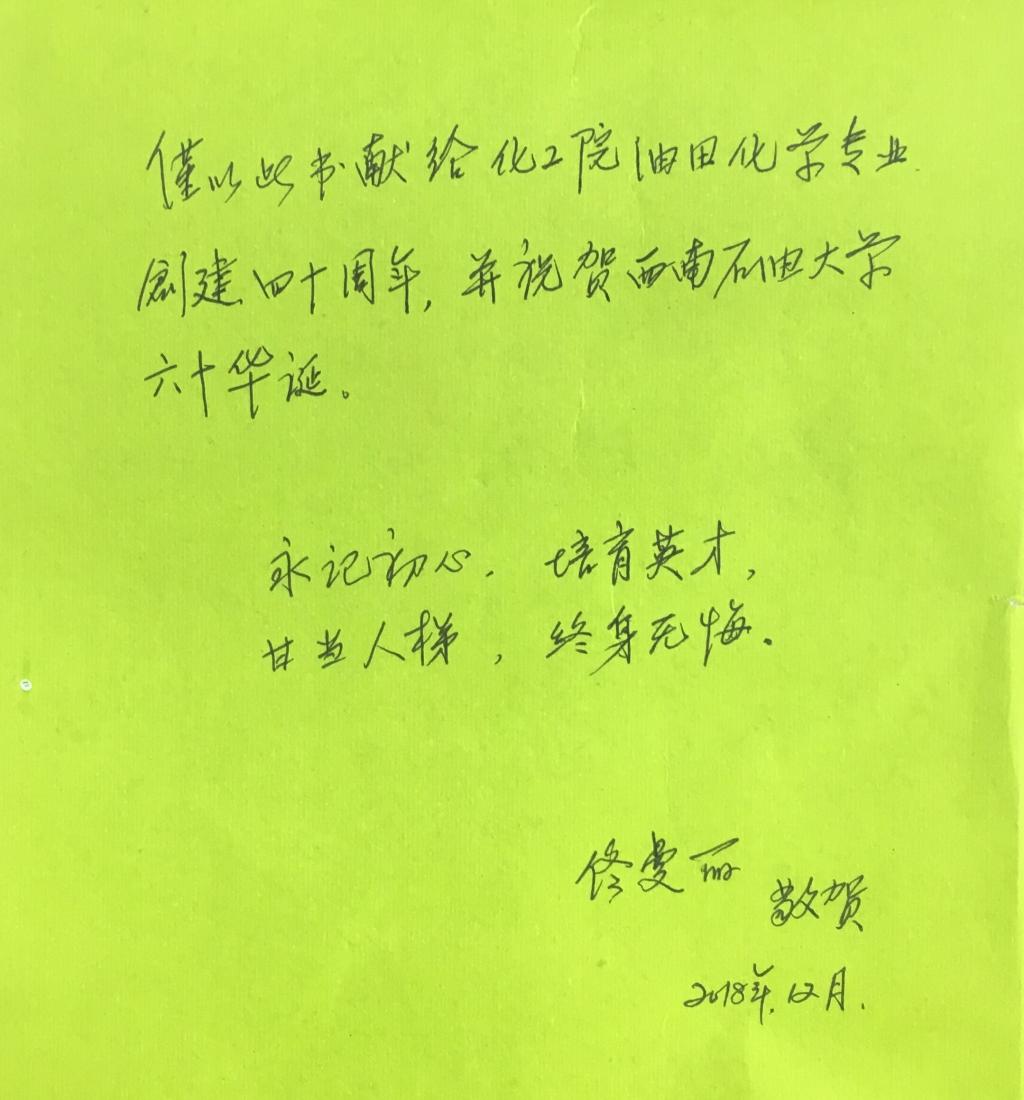 僅以此书献给化工院油田化学专业
創建四十周年，并祝贺西南石油大学
六十华诞。
永记初心．培育英才，
甘当人梯，终身无悔．
佟曼丽
敬贺
2018年.12月.